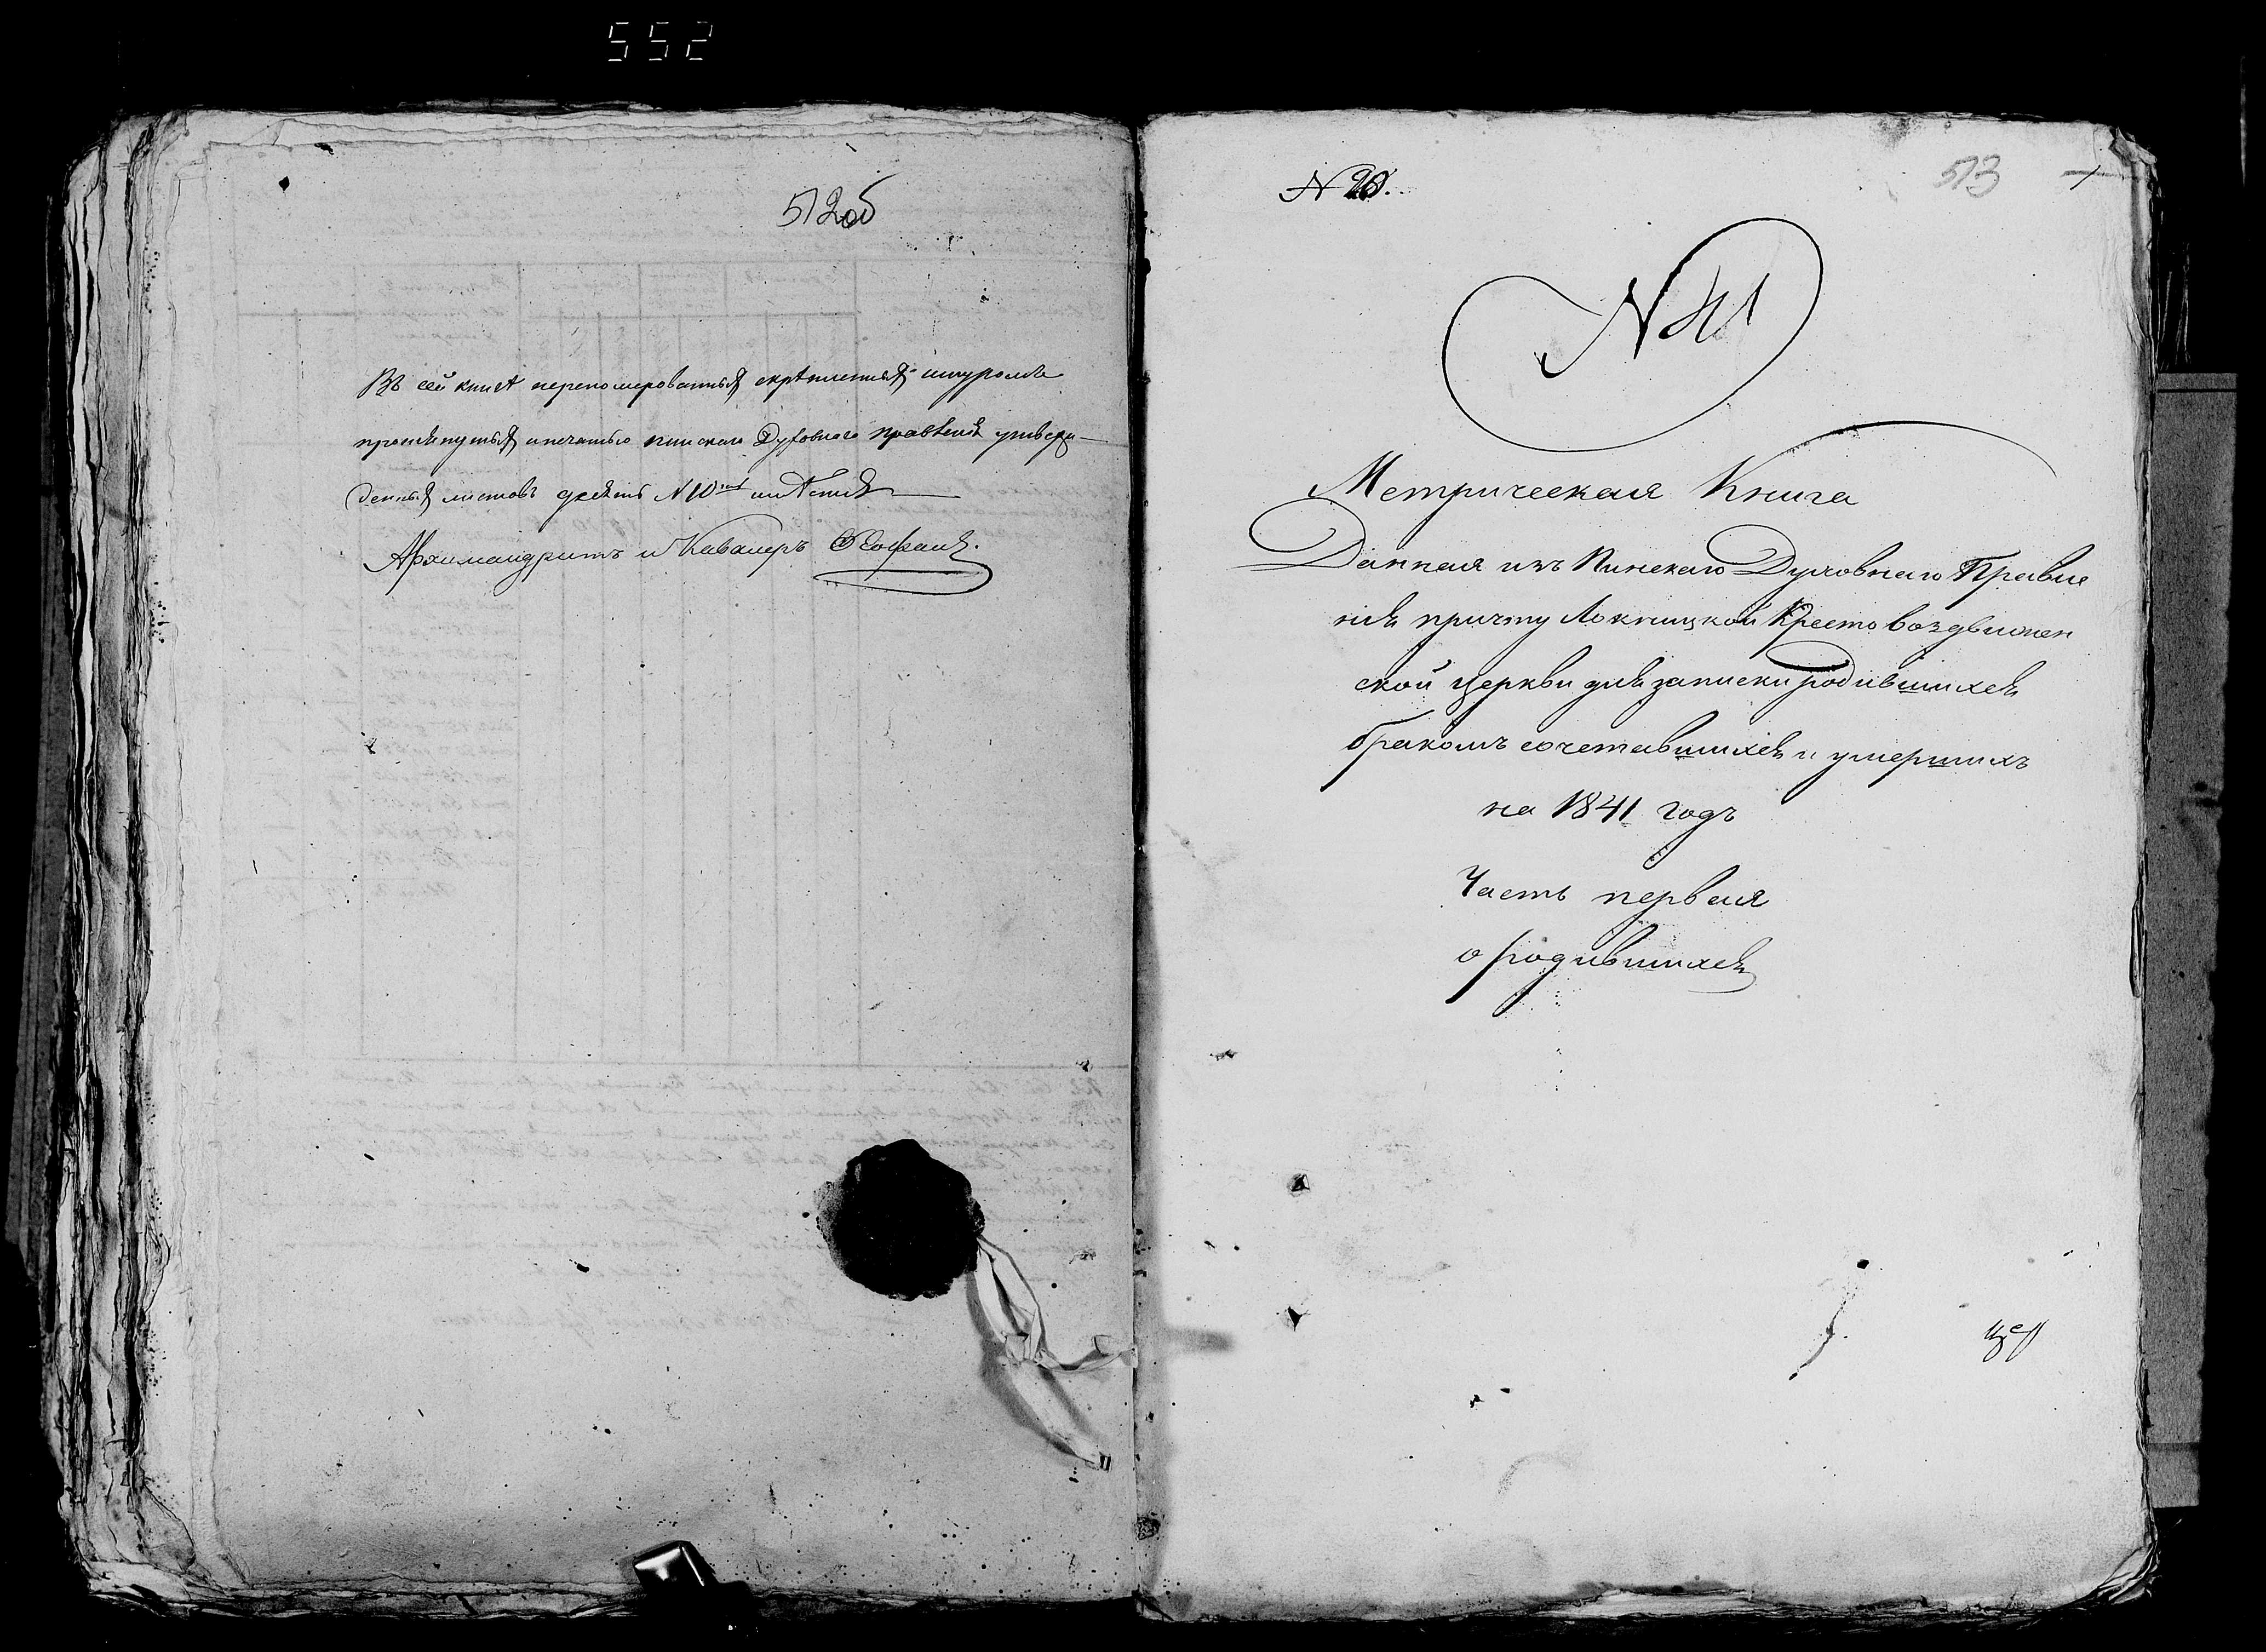 552
512об
Въ сей книгѣ переномерованныхъ скрѣпленныхъ шнуромъ
прошнурныхъ и печатью пинскаго Духовнаго правленія утверж
денныхъ листовъ десять N 10
Архимандритъ и Кавалеръ
N 20.
513
N 41
Метрическая Книга
Данная изъ Пинскаго Духовнаго Правле
нія причту Локницкой Крестовоздвижен
ской церкви для записки родившихся
бракомъ сочетавшихся и умершихъ
на 1841 годъ
Часть первая
о родившихся